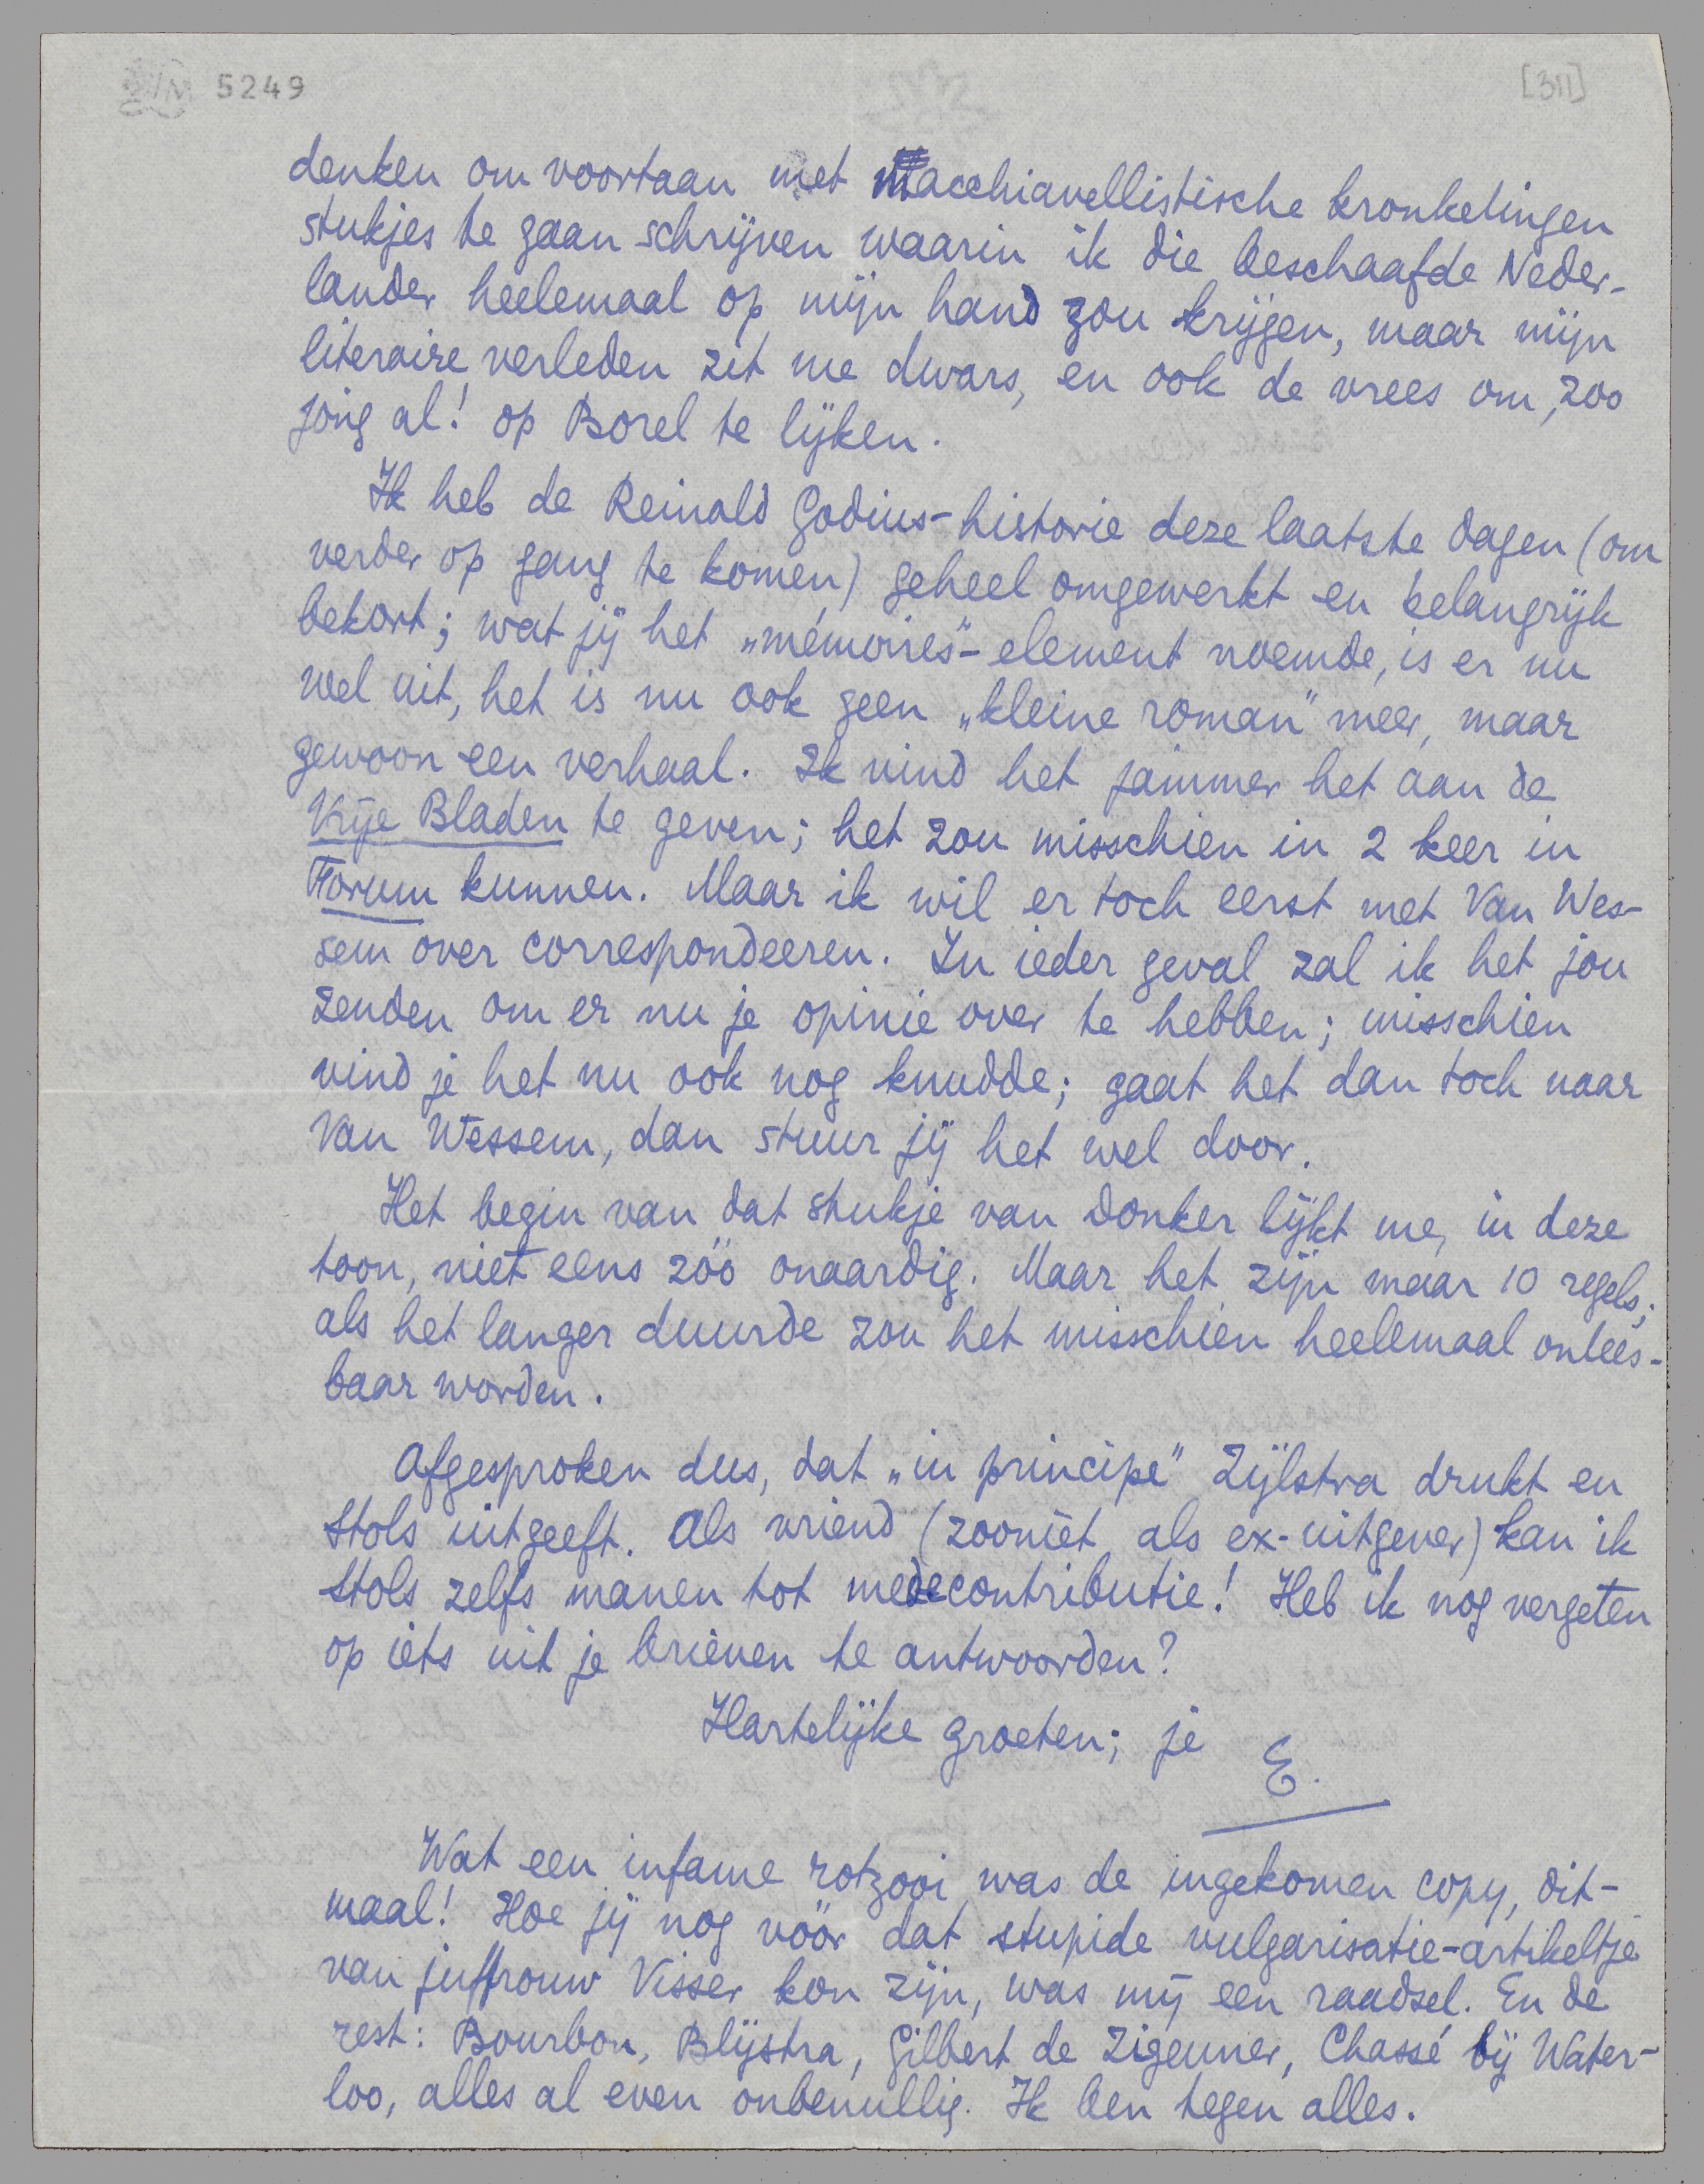 5249
[311]
denken om voortaan met macchiavellistische kronkelingen
stukjes te gaan schrijven waarin ik die beschaafde Neder-
lander heelemaal op mijn hand zou krijgen, maar mijn
literaire verleden zit me dwars, en ook de vrees om, zoo
jong al! op Borel te lijken.
Ik heb de Reinald Godius-historie deze laatste dagen (om
verder op gang te komen) geheel omgewerkt en belangrijk
bekort; wat jij het „mémoires"-element noemde, is er nu
wel uit, het is nu ook geen „kleine roman" meer, maar
gewoon een verhaal. Ik vind het jammer het aan de
Vrije Bladen te geven; het zou misschien in 2 keer in
Forum kunnen. Maar ik wil er toch eerst met Van Wes-
sem over correspondeeren. In ieder geval zal ik het jou
zenden om er nu je opinie over te hebben; misschien
vind je het nu ook nog knudde; gaat het dan toch naar
Van Wessem, dan stuur jij het wel door.
Het begin van dat stukje van Donker lijkt me, in deze
toon, niet eens zóó onaardig. Maar het zijn maar 10 regels;
als het langer duurde zou het misschien heelemaal onlees-
baar worden.
Afgesproken dus, dat „in principe" Zijlstra drukt en
Stols uitgeeft. Als vriend (zooniet als ex-uitgever) kan ik
Stols zelfs manen tot medecontributie! Heb ik nog vergeten
op iets uit je brieven te antwoorden?
Hartelijke groeten; je E.
Wat een infame rotzooi was de ingekomen copy, dit-
maal! Hoe jij nog vóór dat stupide vulgarisatie-artikeltje
van juffrouw Visser kon zijn, was mij een raadsel. En de
rest: Bourbon, Blijstra, Gilbert de Zigeuner, Chassé bij Water-
loo, alles al even onbenullig. Ik ben tegen alles.